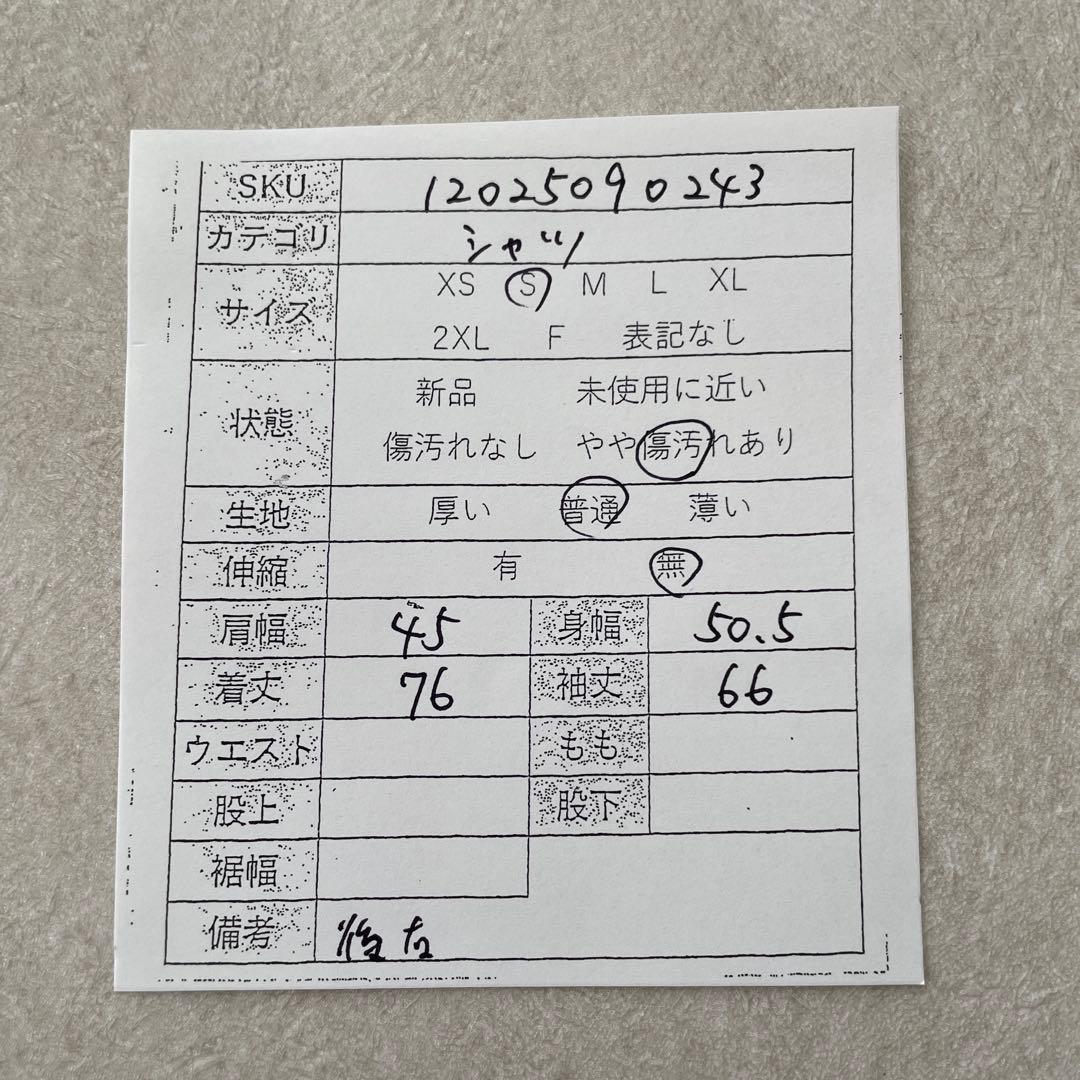 SKU 12025090243
カテゴリ シャツ
サイズ XS S M L XL
2XL F 表記なし
状態 新品 未使用に近い
傷汚れなし やや傷汚れあり
生地 厚い 普通 薄い
伸縮 有 無
肩幅 45 身幅 50.5
着丈 76 袖丈 66
ウエスト もも
股上 股下
裾幅
備考 後